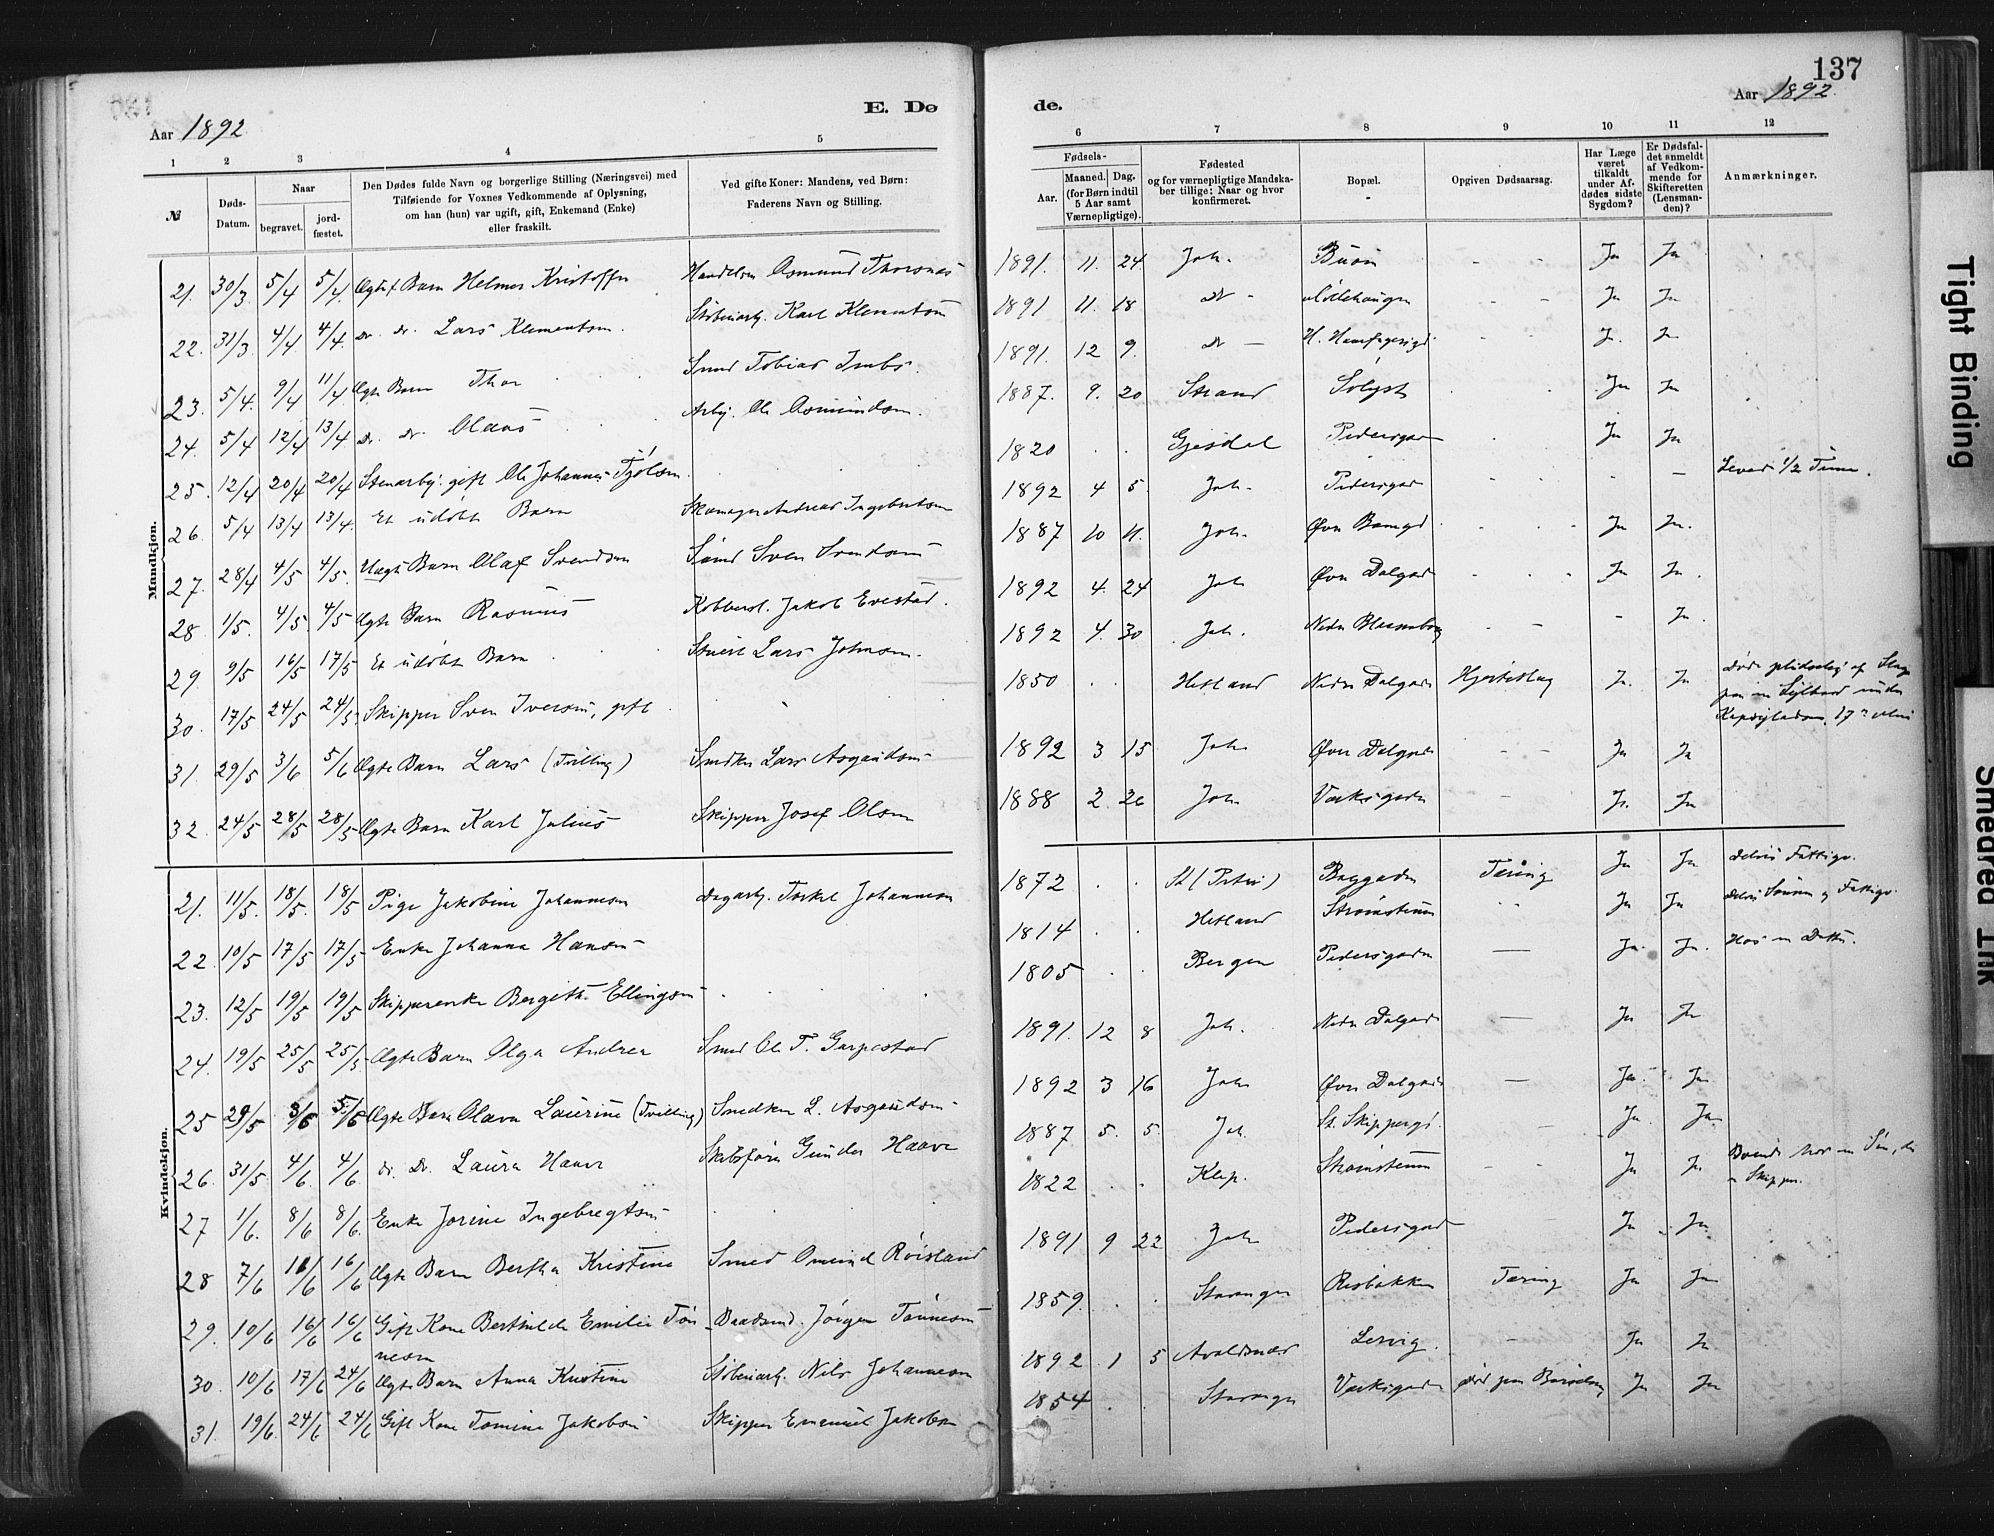 137
E. Dø
de.
Aar 1892
Aar 1892.
1 2 3 4 5 6 7 8 9 10 11 12
№
Døds-Datum.
Naar
begravet.
jord-fæstet.
Den Dødes fulde Navn og borgerlige Stilling (Næringsvei) med
Tilføiende for Voxnes Vedkommende af Oplysning,
om han (hun) var ugift, gift, Enkemand (Enke)
eller fraskilt.
Ved gifte Koner: Mandens, ved Børn:
Faderens Navn og Stilling.
Fødsels-
Aar.
Maaned. Dag.
(for Børn indtil
5 Aar samt
Værnepligtige).
Fødested
og for værnepligtige Mandska-
ber tillige: Naar og hvor
konfirmeret.
Bopæl.
Opgiven Dødsaarsag.
Har Læge
været
tilkaldt
under Af-
dødes sidste
Sygdom?
Er Dødsfal-
det anmeldt
af Vedkom-
mende for
Skifteretten
(Lensman-
den)?
Anmærkninger.
Mandkjøn.
21. 30/3 5/4 5/4 Ægte Barn Helmer Kristoffer Asmund Thorsnæs 1891. 11. 24. Joh. Ja Ja
22. 31/3. 4/4 4/4. do. do. Lars Klementsen. Støberiarb. Karl Klementsen 1891 11. 18 do - Ja Ja
23. 5/4. 9/4 11/4 Ægte Barn Thor Smed Tobias 1891. 12 9. do - Ja. Ja
24. 5/4 12/4 13/4 do. do. Olaus Arbj. Ole Asmundsen. 1887. 9. 20 Strand Solyst Ja Ja
25. 12/4 20/4 20/4 Stenarbj. gift Ole Johannes 1820 Gjesdal Pedersgad Ja Ja
26. 5/4 13/4 13/4. Et udøbt Barn Skomager Andreas Ingebretsen 1892 4 5. Joh. Pedersgad - Levede 1/2 Time.
27. 28/4 4/5 4/5. Uægt. Barn Olaf Svendsen Sømd Sven Svendsen 1887 10 11. Joh. Øvre Ja Ja.
28. 1/5. 4/5 4/5 Ægte Barn Rasmus Kobbersl. Jakob Evestad. 1892 4. 24 Joh Øvre Dalgade Ja Ja.
29. 9/5 16/5 17/5 Et udøbt Barn Lars Johnsen. 1892 4. 30 Joh. Nedre - Ja.
30. 17/5 24/5 24/5 Skipper Sven Iversen, gift 1850 Hetland Nedre Dalgade Hjerteslag Ja. Ja
Døde pludselig af Slag
paa en under
31. 29/5 3/6 5/6 Ægte Barn Lars (Tvilling) Smedsv. Lars Asgautsen 1892 3 15 Joh Øvre Dalgade - Ja Ja
32. 24/5 28/5 28/5 Ægte Barn Karl Julius Skipper Josef Olsen 1888 2. 26 Joh Verksgaden - Ja. Ja
Kvindekjøn.
21. 11/5. 18/5. 18/5 Pige Jakobine Johannesen Dagarb. Torkel Johannesen 1872 St (Petri) Baggaden Tæring Ja Ja Delvis Fattigv.
22. 10/5 17/5 17/5 Enke Johanna Hansen 1814 Hetland Strømsteen Ja Ja Delvis Sønnen og Fattigv.
23. 12/5 19/5 19/5 Skipperenke Bergithe Ellingsen 1805 Bergen Pedersgaden Ja. Ja. Hos en Datter.
24. 19/5 25/5 25/5 Ægte Barn Olga Andrea Smed Ole T. Garpestad 1891. 12 8 Joh. Nedre Dalgade Ja Ja
25 29/5 3/6 5/6 Ægte Barn Olava Laurine (Tvilling) Smedsv. L. Asgautsen 1892 3 16 Joh Øvre Dalgade Ja. Ja
26. 31/5. 4/6. 4/6 do. do. Laura Haave Skibsfører Gunder Haave 1887 5. 5. Joh. St. Skippergd. Ja. Ja.
27 1/6. 8/6 8/6. Enke Jorine Ingebregtsen 1822 Klep. Strømsteen Ja Ja Boende hos en Søn, der
Skipper.
28 7/6 16/6 16/6 Ægte Barn Bertha Kristine Smed Omund Røisland 1891 9 22 Joh Pedersgad Ja Ja
29. 10/6 16/6 16/6 Gift Kone Berthilde Emilie Tøn-
nesen Baadsmd. Jørgen Tønnesen 1859. Stavanger Risbakken Tæring Ja Ja
30. 10/6 17/6 24/6 Ægte Barn Anna Kristine Støberiarb. Nils Johannesen 1892 1 5 Avaldsnæs Lervig. - Ja Ja
31. 19/6. 24/6 24/6 Gift Kone Tomine Jakobsen Skipper Emanuel Jakobsen 1854 Stavanger Verksgaden Død paa Barselseng Ja Ja
Tight Binding
Smeared Ink